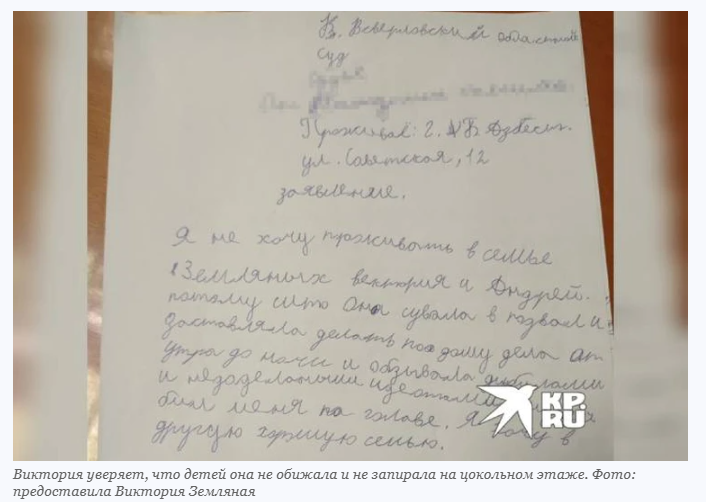 В. Всверловский областной
суд
Проживаю: г. Азбест.
ул. Советская, 12
заявление.
Я не хочу проживать в семье
Земляных виктория и Андрей.
потому што Она сувала в подвал и
заставляла делать по дому дела от
утра до ночи и обзывала дибилами
и недоделаными идеотами
бил меня по голаве. Я хочу в
другую хорошую семью.
KP.RU
Виктория уверяет, что детей она не обижала и не запирала на цокольном этаже. Фото:
предоставила Виктория Земляная